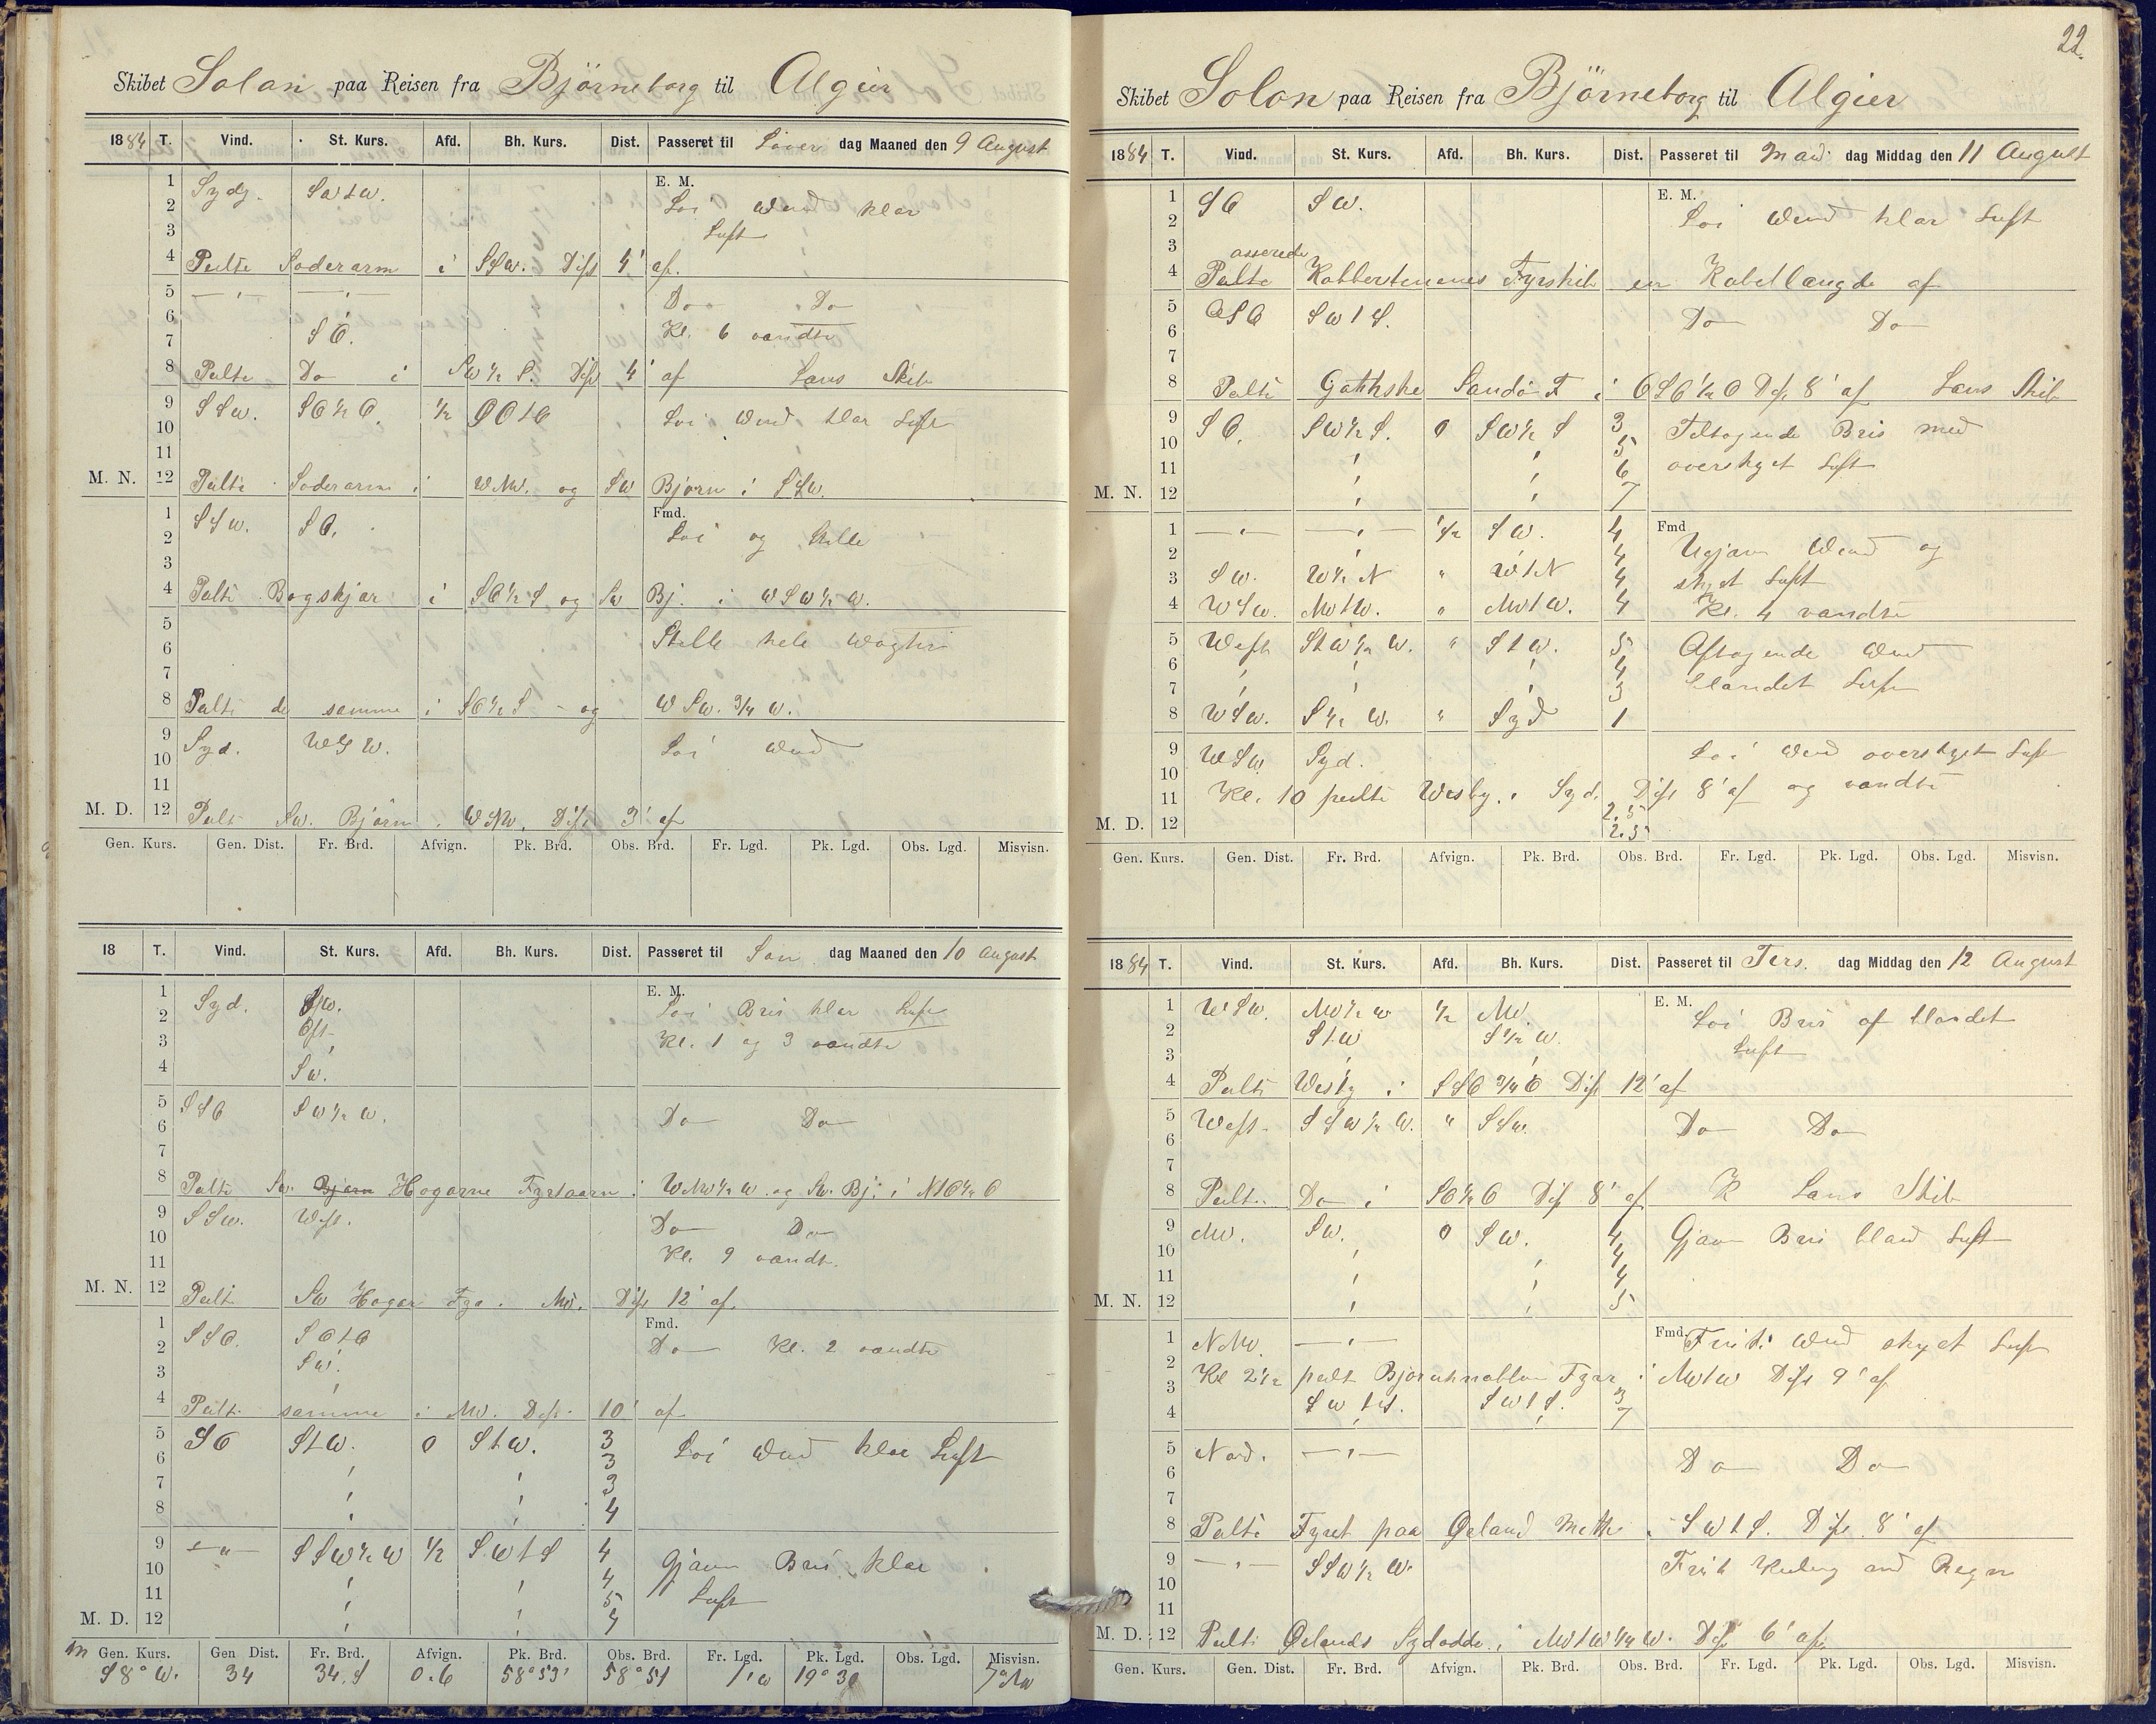 Skibet Solon paa Reisen fra Björneborg til Algier
1884 T. Vind. St. Kurs. Afd. Bh. Kurs. Dist. Passeret til Löver dag Maaned den 9 August
1 Sydg. SWtW. E. M.
2 Löi Wind klar
3 Luft
4 Peilte Soderarm i SSW. Dist 4' af.
5 Do Do
6 SO. Kl. 6 vandte
7
8 Peilte Do i SW½S. Dist 4' af Lans Skib
9 SSW. SO½O. ½ OOtO
10 Löi Wind klar Luft
11
M. N. 12 Peilte Soderarm i WNW. og SW Björn i SSW.
1 Fmd.
2 SSW. SO. Löi og Stille
3
4 Peilte Bogskjär i SO½S og Sw Bj. i WSW½W.
5
6 Stille hele Wagten
7
8 Peilte de samme i SO½S og WSW.¾W.
9
10 Syd. WSW. Löi Wind
11
M. D. 12 Peilt Sw. Björn i WNW. Dist 3' af
Gen. Kurs. Gen. Dist. Fr. Brd. Afvign. Pk. Brd. Obs. Brd. Fr. Lgd. Pk. Lgd. Obs. Lgd. Misvisn.
18 T. Vind. St. Kurs. Afd. Bh. Kurs. Dist. Passeret til Sön dag Maaned den 10 August
1 Syd. SW. E. M.
2 Ost Löi Bris klar Luft
3 Kl. 1 og 3 vandte
4 SW.
5 SSO SW½W.
6 Do Do
7
8 Peilte Sv. Hogarne Fyrtaarn i WNW½W og Sv. Bj. i NtO½O
9 SSW. West. Do Do
10
11 Kl. 9 vandt.
M. N. 12 Peilt Sw Hogar Fyr i NW. Dist 12' af.
1 SSO. SOtO Fmd.
2 SW. Do Kl. 2 vandte
3
4 Peilt samme i NW. Dist 10' af
5 SO StW. 0 StW. 3
6 3 Löi Wind klar Luft
7 3
8 4
9 SSW½W ½ SWtS 4
10 4 Gjävn Bris klar
11 5 Luft
M. D. 12 4
Gen. Kurs. Gen Dist. Fr. Brd. Afvign. Pk. Brd. Obs. Brd. Fr. Lgd. Pk. Lgd. Obs. Lgd. Misvisn.
S8°W. 34 34.S 0.6 58°53' 58°51 1'w 19°30
22.
Skibet Solon paa Reisen fra Björneborg til Algier
1884 T. Vind. St. Kurs. Afd. Bh. Kurs. Dist. Passeret til Man dag Middag den 11 August
1 SO SW. E. M.
2 Löi Wind klar Luft
3 asserede
4 Kobberstenenes Fyrskib en Kabellængde af
5 OSO SWtS.
6 Do Do
7
8 Peilte Gothske Sandö F i OSO½O Dist 8' af Lans Skib
9 SO. SW½S. 0 SW½S 3 Tiltagende Bris med
10 5
11 6 overskyet Luft
M. N. 12 7
1 ½ SW. 4 Fmd
2 4 Ugjävn Wind og
3 SW. W½N WtN 4 skyet Luft
4 WSW. NWtW. NWtW. 4 Kl. 4 vandte
5 West StW½W. StW. 5 Aftagende Wind
6 4
7 3 blandet Luft
8 WSW. S½W. Syd 1
9 WSW Syd. Löi Wind overskyet Luft
10
11 Kl. 10 peilte Wisby i Syd. Dist 8' af og vandte
2.5
M. D. 12 2.5
Gen. Kurs. Gen. Dist. Fr. Brd. Afvign. Pk. Brd. Obs. Brd. Fr. Lgd. Pk. Lgd. Obs. Lgd. Misvisn.
1884 T. Vind. St. Kurs. Afd. Bh. Kurs. Dist. Passeret til Tirs. dag Middag den 12 August
1 WSW. NW½W ½ NW E. M.
2 StW S½W. Löi Bris af blandet
3 Luft
4 Peilte Wisby i SSO¾O Dist 12' af
5 West SSW½W. SSW.
6 Do Do
7
8 Peilt. Do i SO½O Dist 8' af Lans Skib
9 NW. SW. 0 SW. 4 Gjävn Bris bland Luft
10 4
11 4
M. N. 12 5
1 NNW. Fmd. Frisk Wind skyet Luft
2
3 Kl 2½ peilt Fyr i NWtW Dist 9' af
SWtS. SWtS. 3
4 7
5 Nord.
6 Do Do
7
8 Peilte Fyret paa Øeland i SWtS. Dist 8' af
9 SSW½W.
10 Frisk Kuling med Regn
11
M. D. 12 Peilt Oelands Sydodde i NWtW¼W. Dist 6' af
Gen. Kurs. Gen. Dist. Fr. Brd. Afvign. Pk. Brd. Obs. Brd. Fr. Lgd. Pk. Lgd. Obs. Lgd. Misvisn.